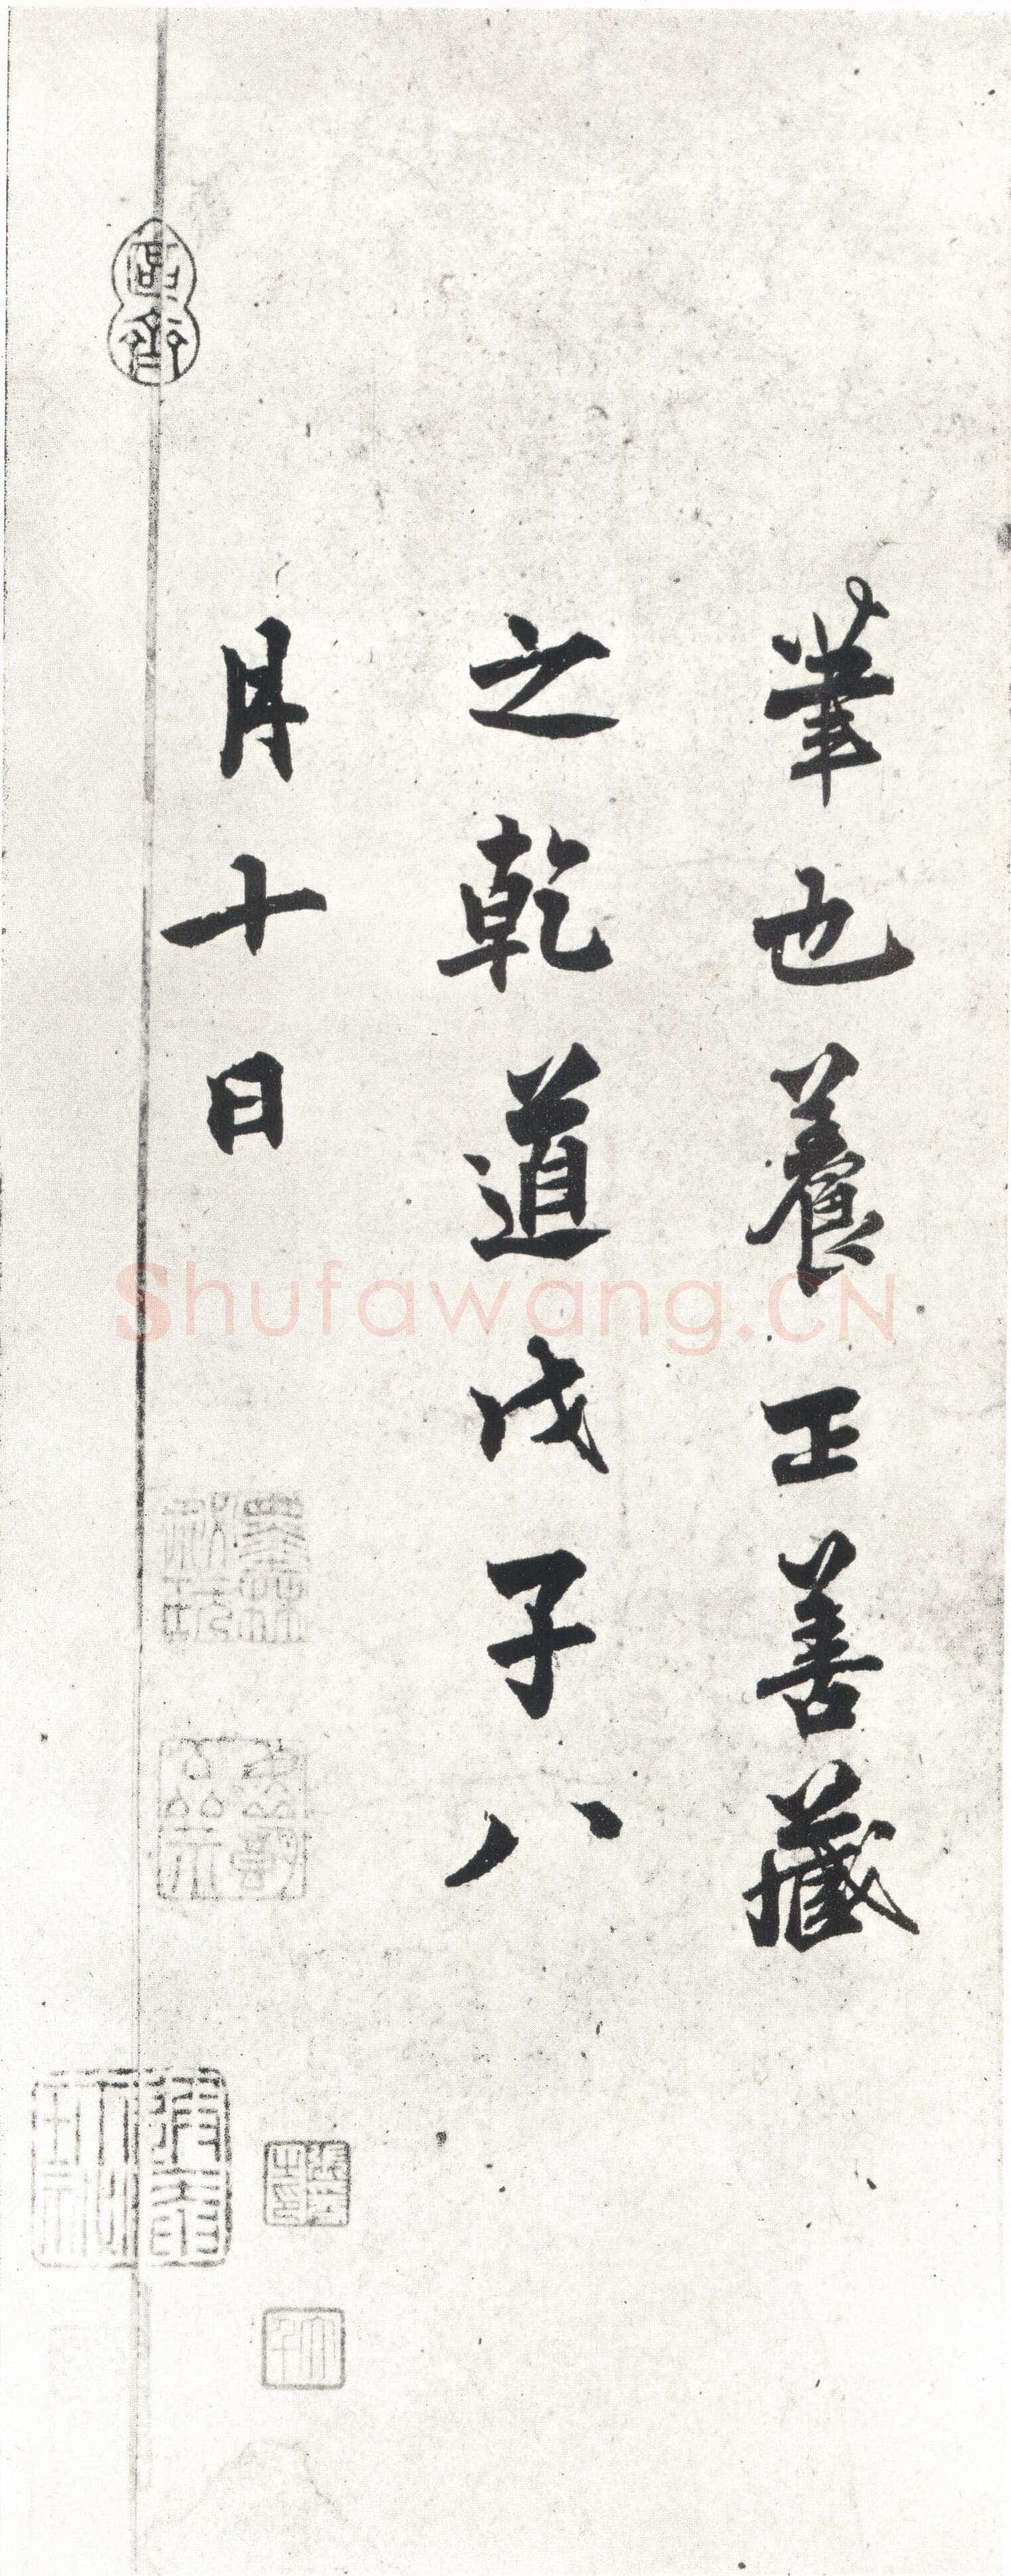 筆也養正善藏
之乾道戊子八
月十日
Shufawang.CN